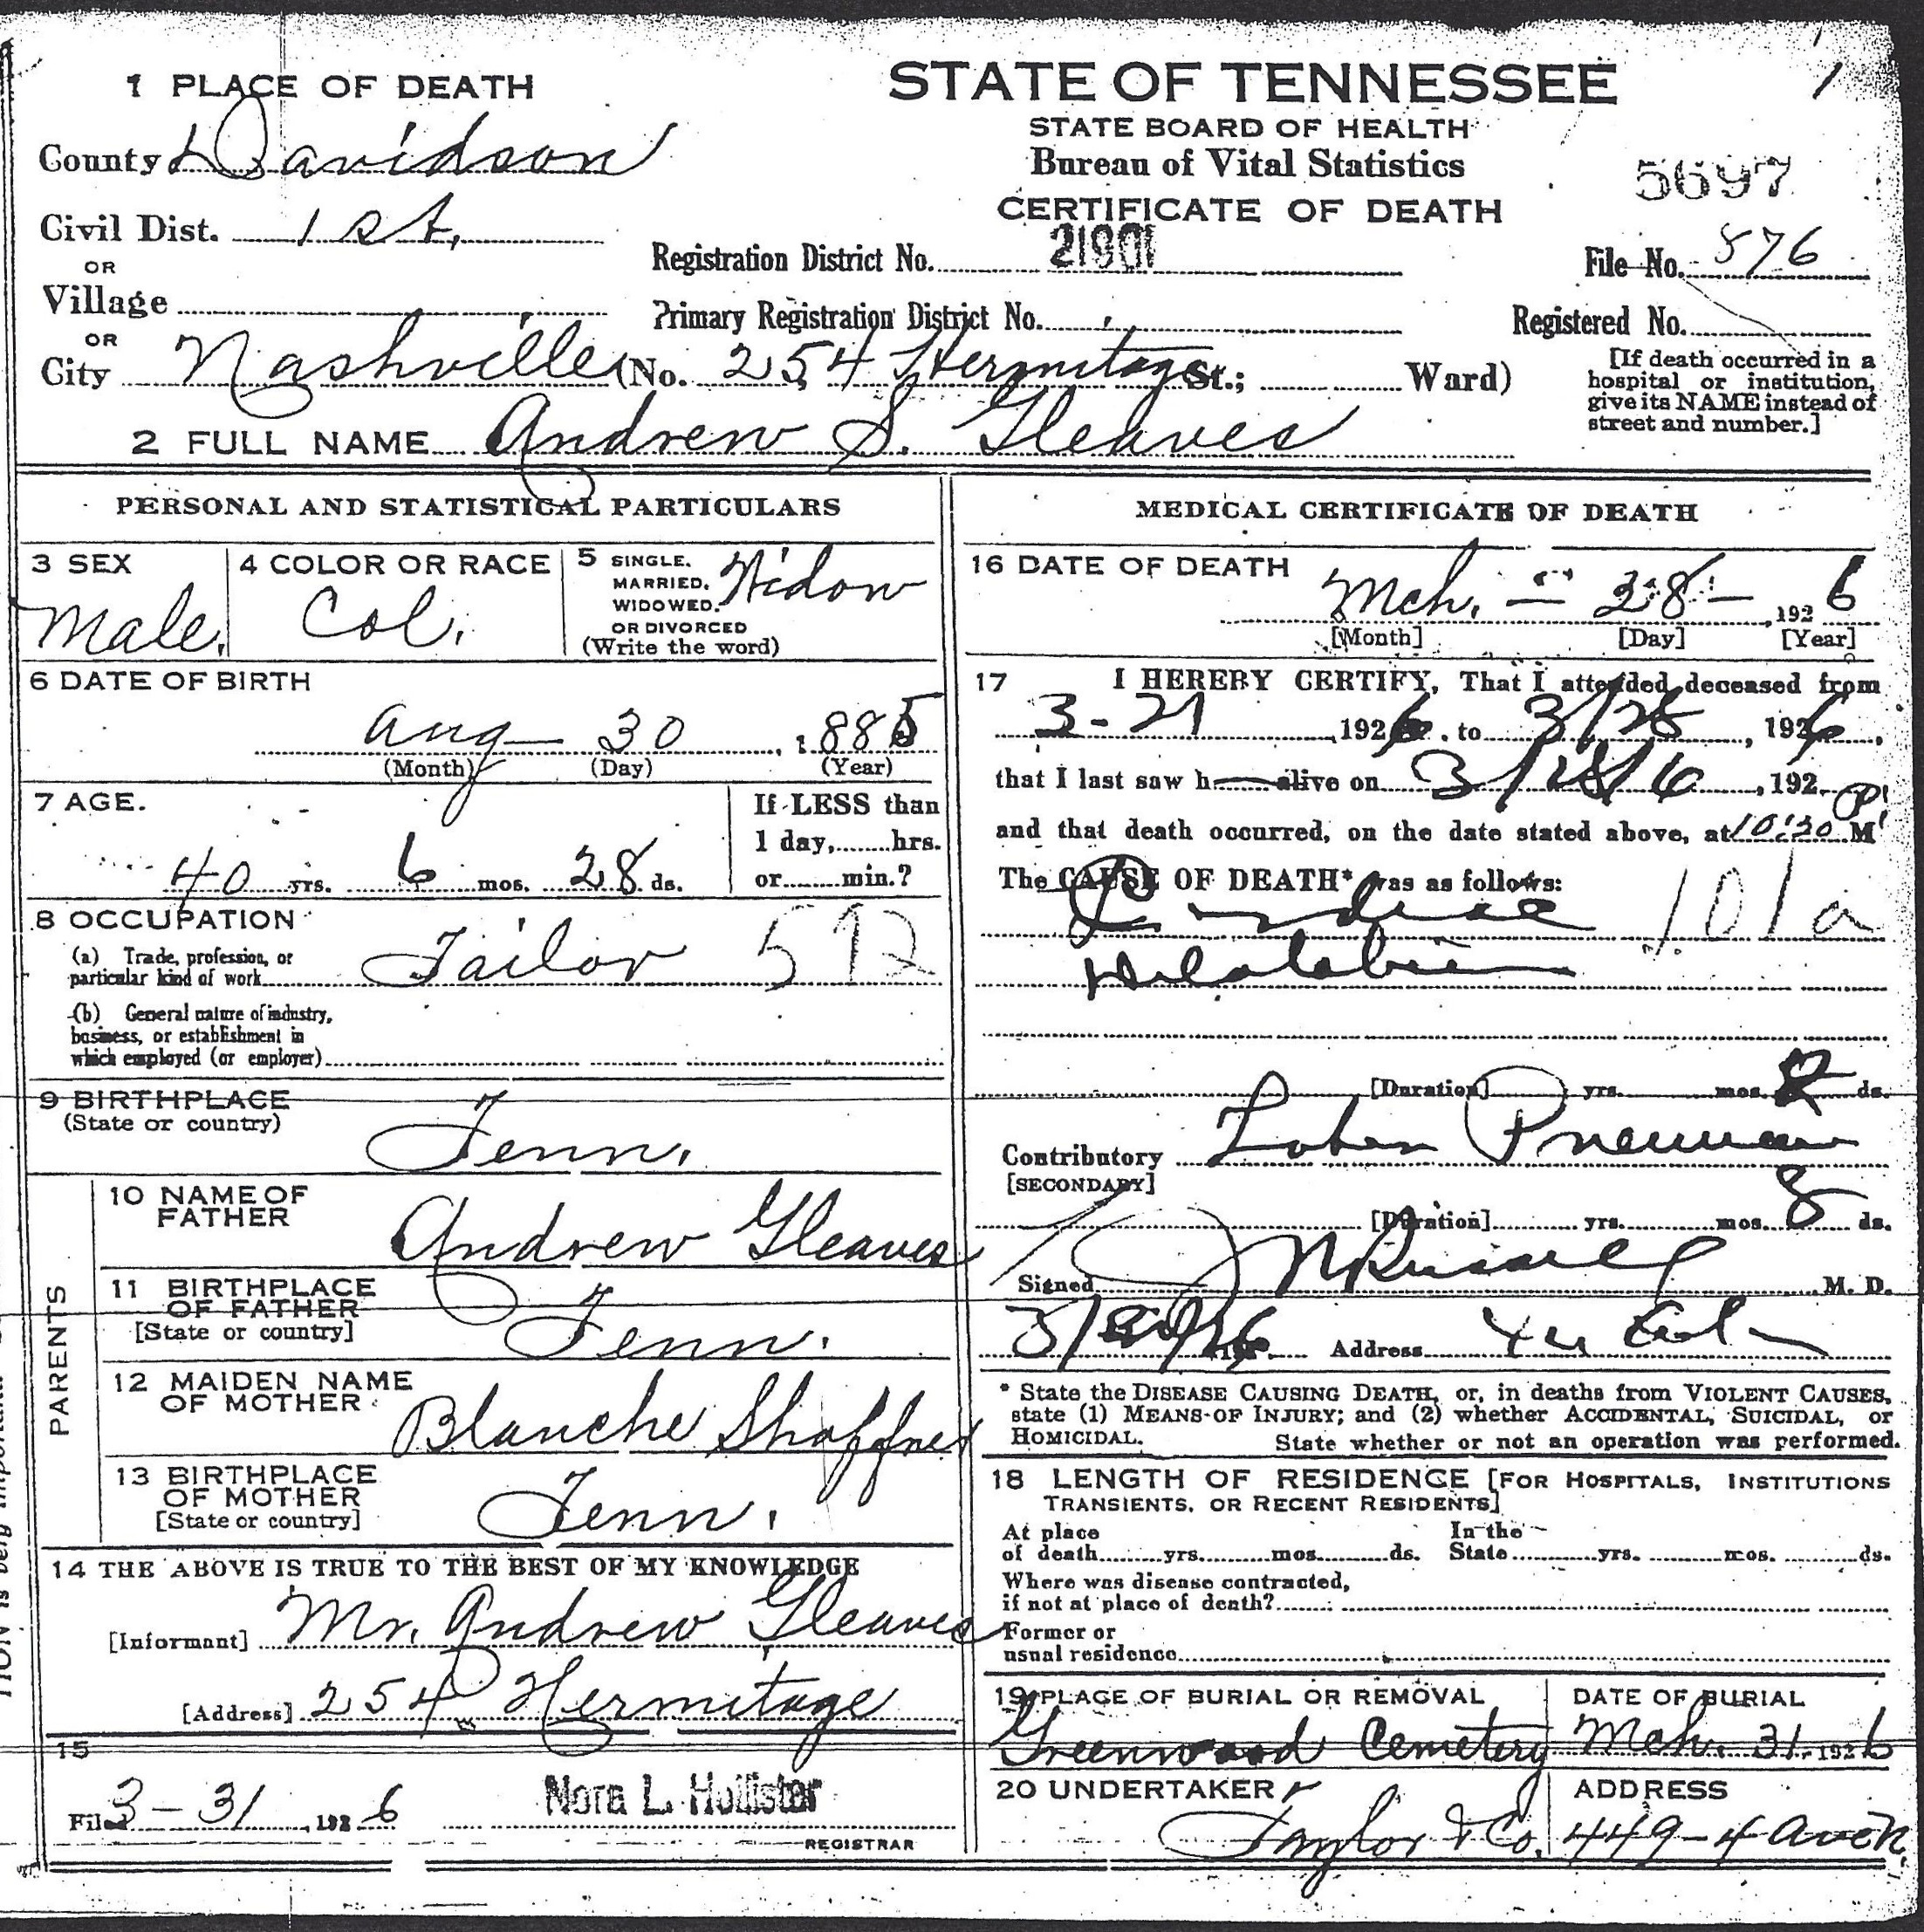 1 PLACE OF DEATH
County Davidson
Civil Dist. 1st.
OR
Village
OR
City Nashville (No. 254 Hermitage St.; Ward)
STATE OF TENNESSEE
STATE BOARD OF HEALTH
Bureau of Vital Statistics
CERTIFICATE OF DEATH
5697
Registration District No. 21901
File No. 876
Primary Registration District No.
Registered No.
[If death occurred in a
hospital or institution,
give its NAME instead of
street and number.]
2 FULL NAME Andrew S. Gleaves
PERSONAL AND STATISTICAL PARTICULARS
3 SEX
Male.
4 COLOR OR RACE
Col.
5 SINGLE.
MARRIED.
WIDOWED.
OR DIVORCED
(Write the word)
Widow
6 DATE OF BIRTH
Aug 30, 1885
(Month) (Day) (Year)
7 AGE.
40 yrs. 6 mos. 28 ds.
If LESS than
1 day, hrs.
or min.?
8 OCCUPATION
(a) Trade, profession, or
particular kind of work Tailor 592
(b) General nature of industry,
business, or establishment in
which employed (or employer)
9 BIRTHPLACE
(State or country)
Tenn.
PARENTS
10 NAME OF
FATHER
Andrew Gleaves
11 BIRTHPLACE
OF FATHER
[State or country]
Tenn.
12 MAIDEN NAME
OF MOTHER
Blanche Shaffner
13 BIRTHPLACE
OF MOTHER
[State or country]
Tenn.
14 THE ABOVE IS TRUE TO THE BEST OF MY KNOWLEDGE
[Informant] Mr. Andrew Gleaves
[Address] 254 Hermitage
15
Filed 3-31, 1926
Nora L. Hollister
REGISTRAR
MEDICAL CERTIFICATE OF DEATH
16 DATE OF DEATH
Mch. - 28 - , 1926
[Month] [Day] [Year]
17 I HEREBY CERTIFY, That I attended deceased from
3-21 1926. to 3/28, 1926,
that I last saw h alive on 3/28/6, 192
and that death occurred, on the date stated above, at 10:30 P M
The CAUSE OF DEATH* was as follows:
Cardiac 101a
Dilatation
[Duration] yrs. mos. ds.
Contributory Lobar Pneumonia
[SECONDARY]
[Duration] yrs. mos. 8 ds.
Signed M. D.
Address
* State the DISEASE CAUSING DEATH, or, in deaths from VIOLENT CAUSES,
state (1) MEANS OF INJURY; and (2) whether ACCIDENTAL, SUICIDAL, or
HOMICIDAL. State whether or not an operation was performed.
18 LENGTH OF RESIDENCE [FOR HOSPITALS, INSTITUTIONS
TRANSIENTS, OR RECENT RESIDENTS]
At place
of death yrs. mos. ds.
In the
State yrs. mos. ds.
Where was disease contracted,
if not at place of death?
Former or
usual residence
19 PLACE OF BURIAL OR REMOVAL
Greenwood Cemetery
DATE OF BURIAL
Mch. 31, 1926
20 UNDERTAKER
Taylor & Co.
ADDRESS
449-4 Ave N.